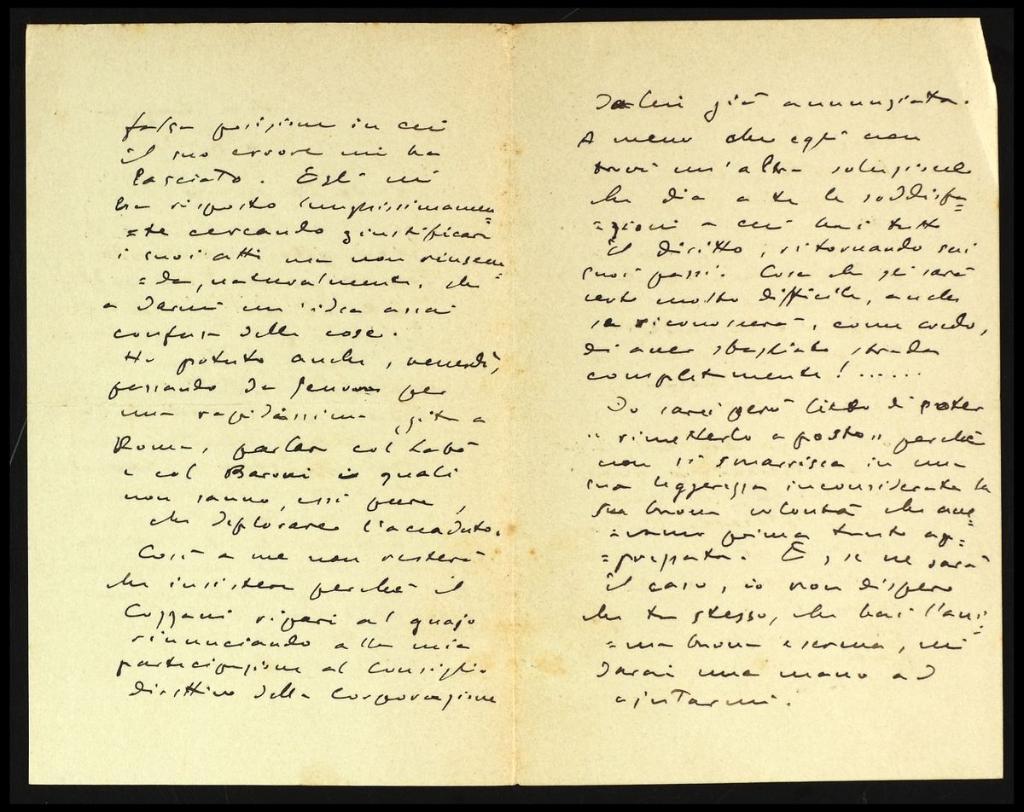 falsa posizione in cui
il suo errore mi ha
lasciato. Egli mi
ha risposto lunghissimamen=
=te cercando giustificare
i suoi atti ma non riuscen=
=do, naturalmente, che
a darmi un'idea assai
confusa delle cose.
Ho potuto anche, venerdì,
passando da Genova per
una rapidissima gita a
Roma, parlare col Labò
e col Baroni i quali
non sanno, essi pure,
che deplorare l'accaduto.
Così a me non resterà
che insistere perché il
Cozzani ripari al guajo
rinunciando alla mia
partecipazione al Consiglio
direttivo della Corporazione
da lui già annunziata.
A meno che egli non
trovi un'altra soluzione
che dia a te le soddisfa=
=zioni a cui hai tutto
il diritto, ritornando sui
suoi passi. Cosa che gli sarà
certo molto difficile, anche
se riconoscerà, come credo,
di aver sbagliato strada
completamente!......
Io sarei però lieto di poter
"rimetterlo a posto" perché
non si smarrisca in una
sua leggerezza inconsiderata la
sua buona volontà che ave=
=vamo prima tanto ap=
=prezzata. E, se ne sarà
il caso, io non dispero
che tu stesso, che hai l'ani=
=ma buona e serena, mi
darai una mano ad
ajutarmi.